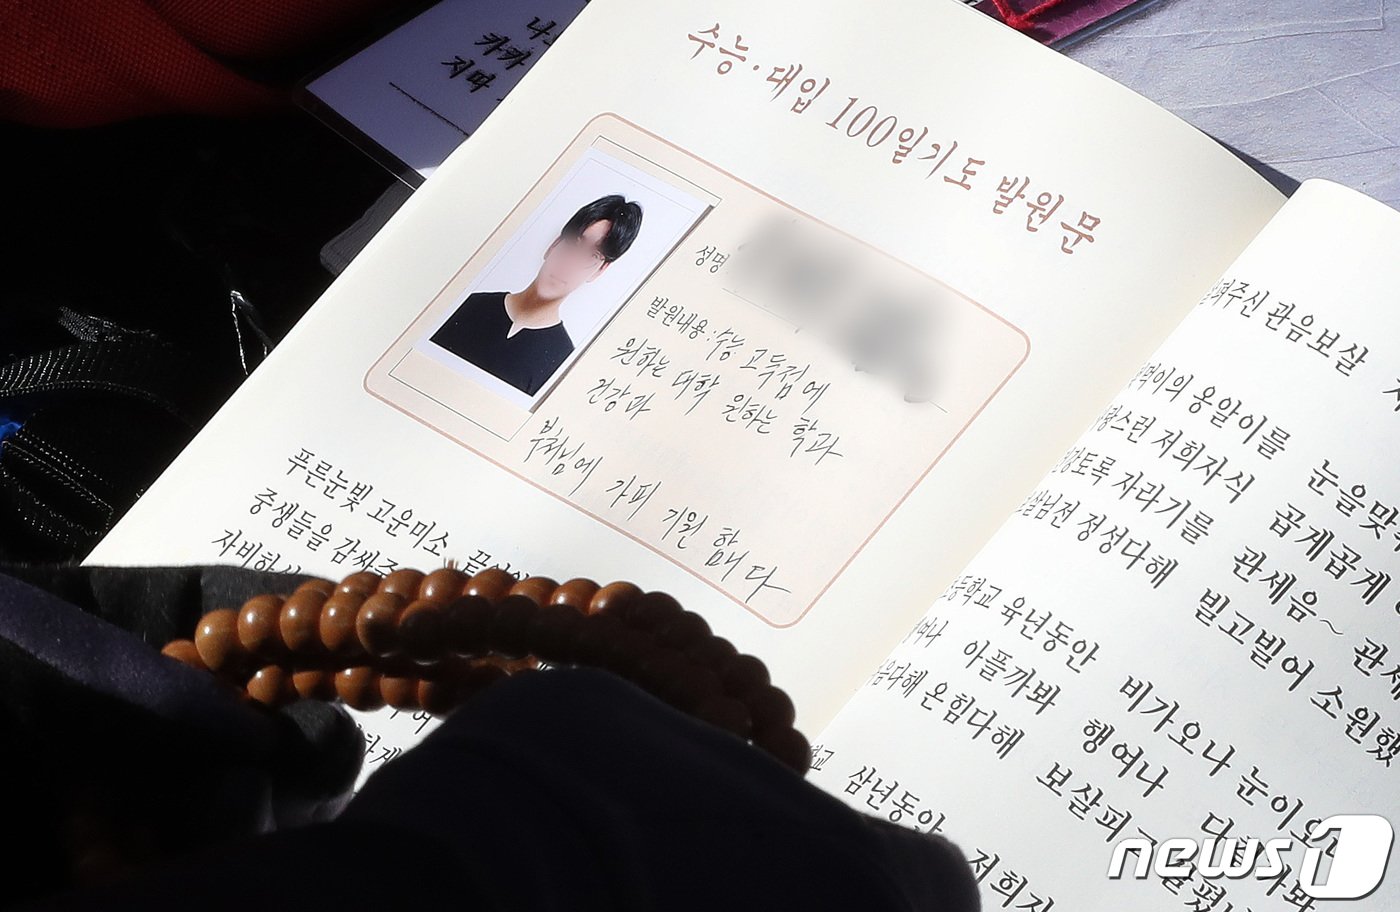 수능·대입 100일기도 발원문
성명
발원내용: 수능 고득점에
원하는 대학 원하는 학과
건강과
부처님에 가피 기원 합니다
푸른눈빛 고운미소
중생들을 감싸주
자비하
주신 관음보살
옹알이를 눈을맞
저희자식 곱게곱게
자라기를 관세음~ 관세
정성다해 빌고빌어 소원했
육년동안 비가오나 눈이오
아플까봐 행여나 다칠까봐
온힘다해 보살피
삼년동안 저희자
카카
지따
news1